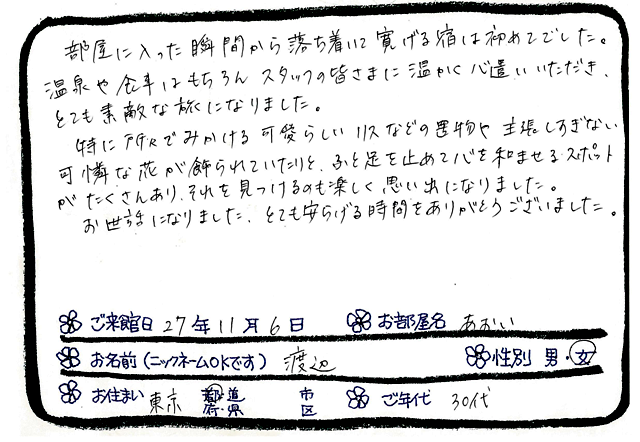 部屋に入った瞬間から落ち着いて寛げる宿は初めてでした。
温泉や食事はもちろん スタッフの皆さまに温かく心遣いいただき、
とても素敵な旅になりました。
特に所々でみかける可愛らしいリスなどの置物や主張しすぎない
可憐な花が飾られていたりと、ふと足を止めて心を和ませるスポット
がたくさんあり、それを見つけるのも楽しく思い出になりました。
お世話になりました、とても安らげる時間をありがとうございました。
ご来館日 27年11月6日 お部屋名 あおい
お名前(ニックネームOKです) 渡辺 性別 男・女
お住まい 東京 都・道 府・県 市 区 ご年代 30代